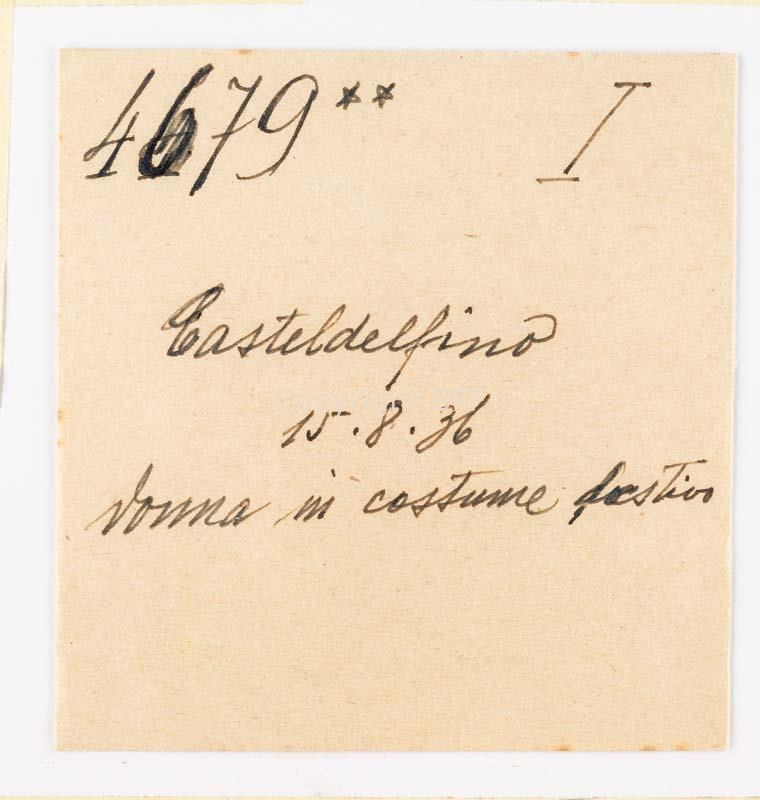 4679** I
Casteldelfino
15.8.36
donna in costume festivo